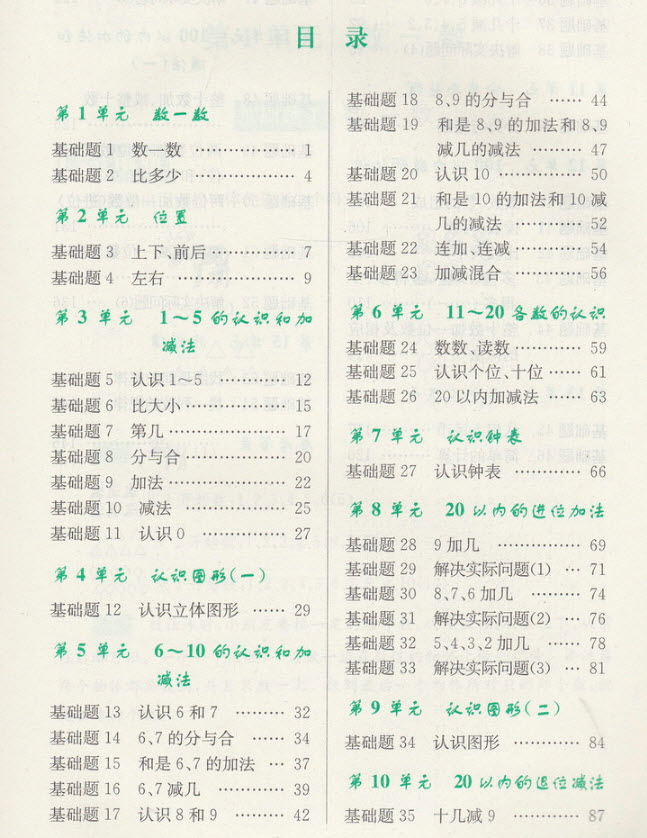 目 录
第 1 单元 数一数
基础题 1 数一数 ………… 1
基础题 2 比多少 ………… 4
第 2 单元 位置
基础题 3 上下、前后 ………… 7
基础题 4 左右 ………… 9
第 3 单元 1～5 的认识和加
减法
基础题 5 认识 1～5 ………… 12
基础题 6 比大小 ………… 15
基础题 7 第几 ………… 17
基础题 8 分与合 ………… 20
基础题 9 加法 ………… 22
基础题 10 减法 ………… 25
基础题 11 认识 0 ………… 27
第 4 单元 认识图形(一)
基础题 12 认识立体图形 …… 29
第 5 单元 6～10 的认识和加
减法
基础题 13 认识 6 和 7 ……… 32
基础题 14 6、7 的分与合 …… 34
基础题 15 和是 6、7 的加法 … 37
基础题 16 6、7 减几 ………… 39
基础题 17 认识 8 和 9 ……… 42
基础题 18 8、9 的分与合 …… 44
基础题 19 和是 8、9 的加法和 8、9
减几的减法 ……… 47
基础题 20 认识 10 ………… 50
基础题 21 和是 10 的加法和 10 减
几的减法 ………… 52
基础题 22 连加、连减 ……… 54
基础题 23 加减混合 ………… 56
第 6 单元 11～20 各数的认识
基础题 24 数数、读数 ……… 59
基础题 25 认识个位、十位 … 61
基础题 26 20 以内加减法 … 63
第 7 单元 认识钟表
基础题 27 认识钟表 ……… 66
第 8 单元 20 以内的进位加法
基础题 28 9 加几 ………… 69
基础题 29 解决实际问题(1) … 71
基础题 30 8、7、6 加几 ……… 74
基础题 31 解决实际问题(2) … 76
基础题 32 5、4、3、2 加几 …… 78
基础题 33 解决实际问题(3) … 81
第 9 单元 认识图形(二)
基础题 34 认识图形 ………… 84
第 10 单元 20 以内的退位减法
基础题 35 十几减 9 ………… 87